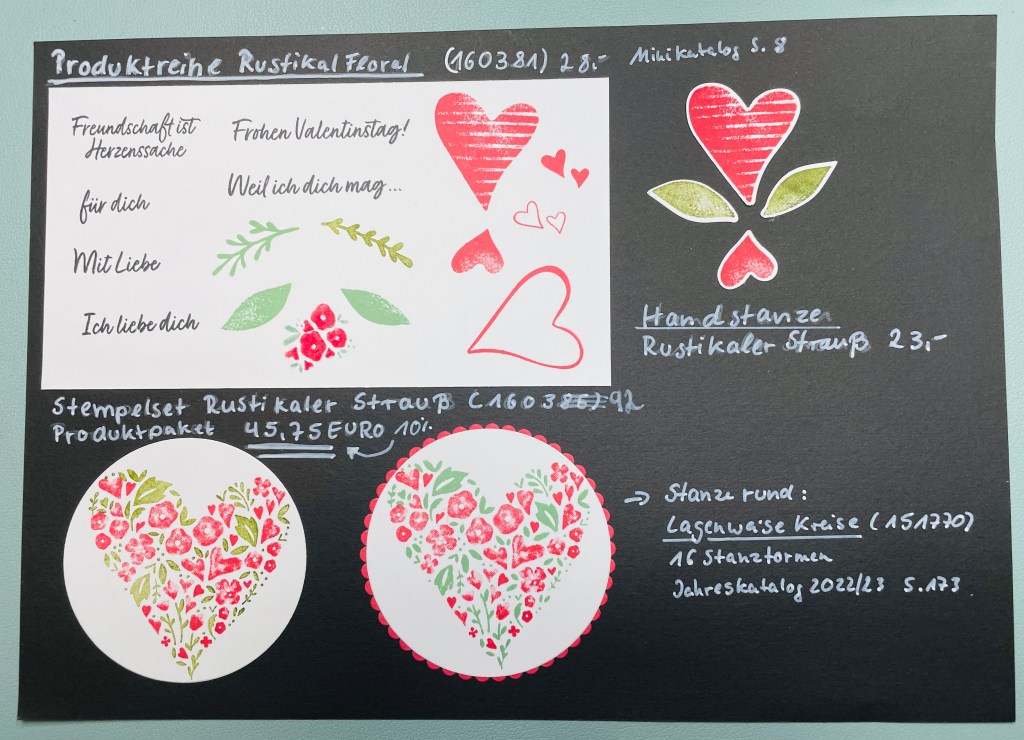 Produktreihe Rustikal Floral (160381) 28.- Minikatalog S. 8
Freundschaft ist
Herzenssache
für dich
Mit Liebe
Ich liebe dich
Frohen Valentinstag!
Weil ich dich mag...
Handstanze
Rustikaler Strauß 23,-
Stempelset Rustikaler Strauß (160392
Produktpaket 45,75 EURO 10%
→ Stanze rund:
Lagenwäise Kreise (151770)
16 Stanzformen
Jahreskatalog 2022/23 S.173